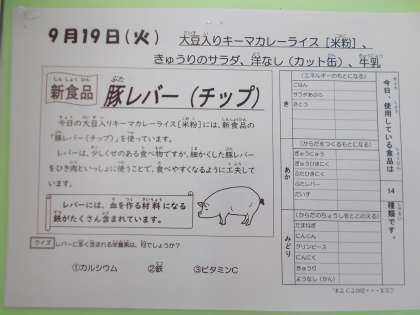 9月19日(火) 大豆入りキーマカレーライス[米粉]、
きゅうりのサラダ、洋なし(カット缶)、牛乳
新食品 豚レバー(チップ)
今日の大豆入りキーマカレーライス[米粉]には、新食品の
「豚レバー(チップ)」を使っています。
レバーは、少しくせのある食べ物ですが、細かくした豚レバー
をひき肉といっしょに使うことで、食べやすくなるように工夫して
います。
レバーには、血を作る材料になる
鉄がたくさん含まれています。
クイズ レバーに多く含まれる栄養素は、何でしょうか?
①カルシウム ②鉄 ③ビタミンC
今日、使用している食品は 14 種類です。
き
(エネルギーのもとになる)
ごはん
さとう
あか
(からだをつくるもとになる)
ぎゅうにゅう
ぎゅうひきにく
ぶたひきにく
ぶたレバー
だいず
みどり
(からだのちょうしをととのえる)
たまねぎ
にんじん
グリンピース
にんにく
きゅうり
ようなし(かん)